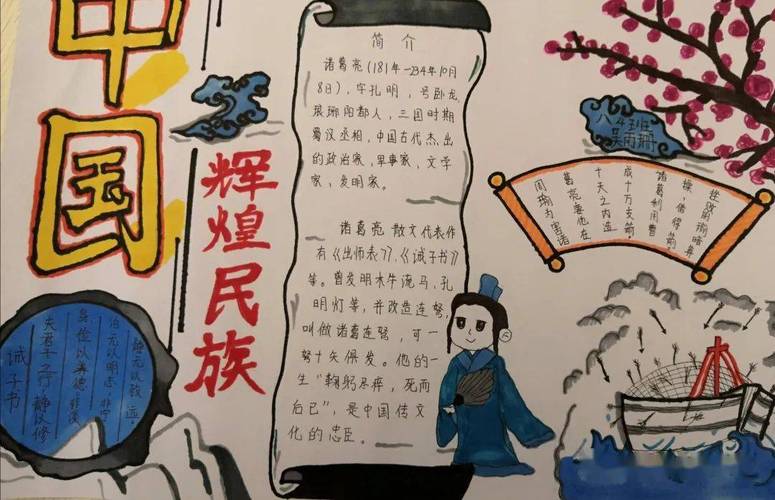 中国
辉煌民族
简 介
诸葛亮(181年-234年10月
8日),字孔明,号卧龙,
琅琊阳都人,三国时期
蜀汉丞相,中国古代杰出
的政治家,军事家,文学
家,发明家。
诸葛亮散文代表作
有《出师表》,《诫子书》
等。曾发明木牛流马,孔
明灯等,并改造连弩,
叫做诸葛连弩,可一
弩十矢俱发。他的一
生“鞠躬尽瘁,死而
后已”,是中国传文
化的忠臣。
八4班
吴雨珊
周瑜为害诸
葛亮要他在
十天之内造
成十万支箭,
诸葛利用曹
操,借得箭
周瑜暗算
诫子书
夫君子之行,静以修
身,俭以养德,非淡
泊无以明志,非宁
静无以致远。